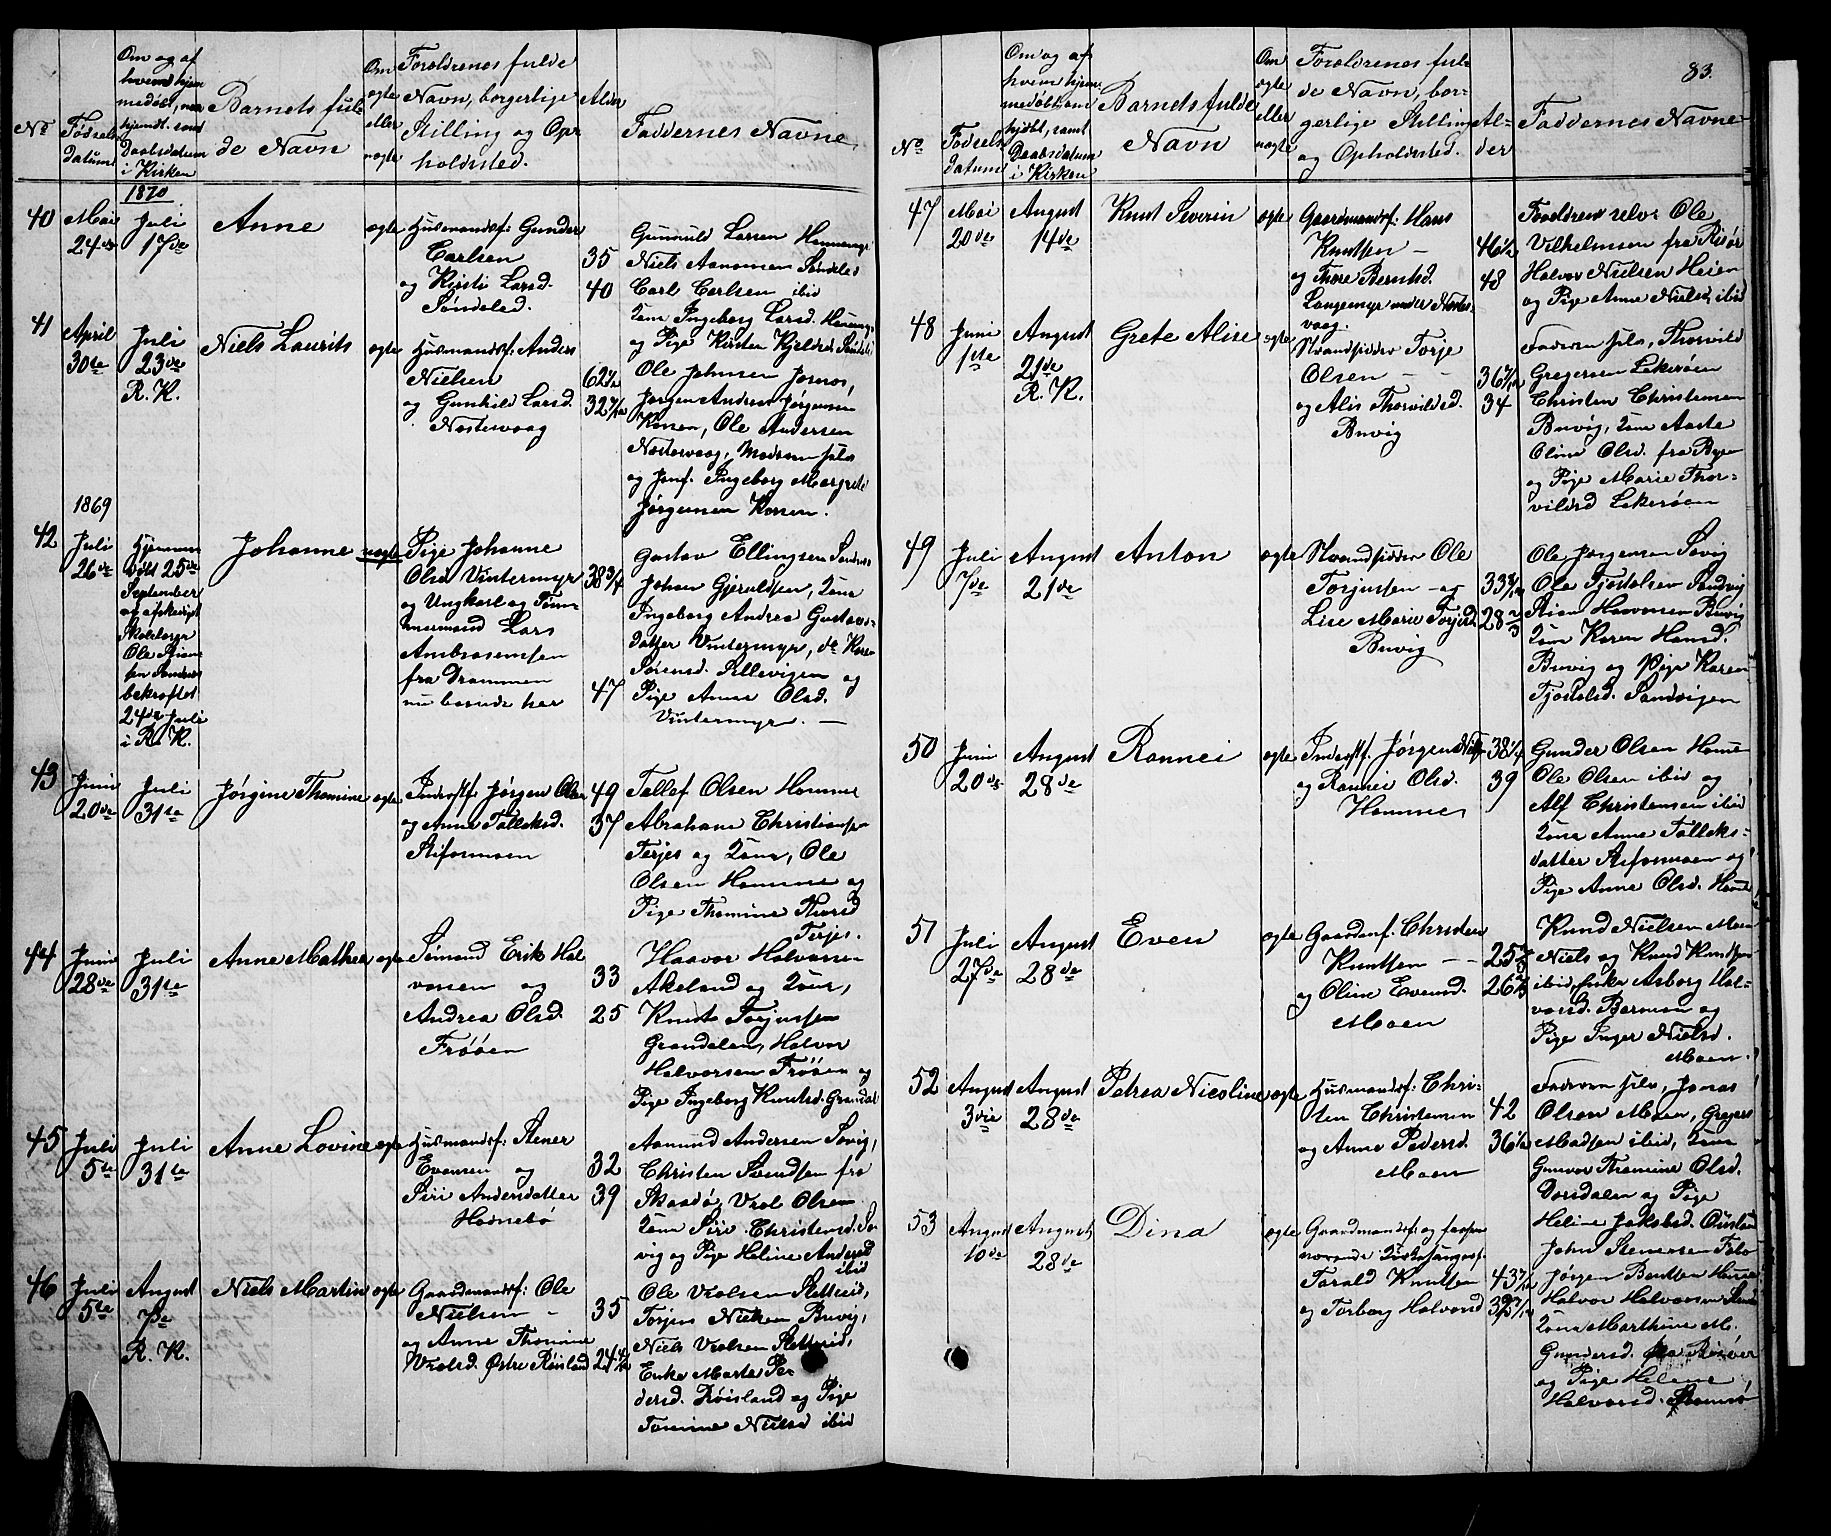 83.
No
Fødsels
datum
Om og af
hvem hjem
medøbt, naar
Daabsdatum
i Kirken
Barnets ful-
de Navn
Om
ægte
eller
uægte
Forældrenes fulde
Navn, borgerlige
Stilling og Op-
holdsted.
Alder
Faddernes Navne
1870
40
Mai
24de
Juli
17de
Anne
ægte
Husmandsf: Gunder
Carlsen
og Kirsti Larsd.
Søndeled
35
40
Gunnuld Larsen
Niels Aanonsen Søndeled
Carl Carlsen ibid
Kone Ingeborg Larsd.
og Pige Kirsten
41
April
30te
Juli
23de
R. K.
Niels Laurits
ægte
Husmandsf: Anders
Nielsen
og Gunhild Larsd.
Nostevaag
62½
32
Ole Johnsen
Jørgen Andreas Jørgensen
Ole Andersen
Nostevaag, Moderen selv
og Jomf. Ingeborg Margrete
Jørgensen
1869
42
Juli
26de
Hjemme
døbt 25de
September
af
Skolelærer
Ole
bekræftet
24de Juli
i R. K.
Johanne
uægte
Pige Johanne
Olsd. Vintermyr
og Ungkarl og Tøm-
mermand Lars
Ambrosensen
fra Drammen
nu boende her
38¾
47
Gustav Ellingsen
Johan Gjeruldsen, Kone
Ingeborg Andrea Gustavs-
datter Vintermyr,
Sørensd. Sellevigen og
Pige Anne Olsd.
Vintermyr. —
43
Juni
20de
Juli
31te
Jørgine Thomine
ægte
Inderstf. Jørgen Olsen
og Anne Talleksd.
Stifosmoen
49
37
Tallef Olsen Homme
Abrahams Christiansen
Terjes og Kone, Ole
Olsen Homme og
Pige Thomine
Terjes.
44
Juni
28de
Juli
31te
Anne Mathea
ægte
Sømand Erik Hal
vorsen og
Andrea Olsd.
Frøoen
33
25
Haavor Halvorsen
Akeland og Kone,
Knut Torjussen
Grændalen, Halvor
Halvorsen Frøoen og
Pige Ingeborg Knutsd. Grændal
45
Juli
5te
Juli
31te
Anne Lovine
ægte
Husmandsf: Stener
Evensen og
Siri Andersdatter
Hornebø
32
39
Aamund Andersen Søvig,
Christen Svendsen fra
Skaadø, Vrol Olsen
Kone Siri Christensd. Sø-
vig og Pige Heline Andersd
ibid
46
Juli
5te
August
7de
R. K.
Niels Martin
ægte
Gaardmandsf: Ole
Nielsen —
og Anne Thomine
Vrolsd. Østre Røisland
35
24
Ole Vrolsen
Torjus Nielsen Buvig,
Niels Vrolsen
Enke Marte Pe-
dersd. Røisland og Pige
Tomine Nielsd ibid
No
Fødsels
datum
Om og af
hvem hjem
medøbt som
hjøbt, samt
Daabsdatum
i Kirken
Barnets fulde
Navn
Om
ægte
eller
uægte
Forældrenes ful-
de Navn, bor-
gerlige Stilling
og Opholdsted.
Al-
der
Faddernes Navne
47
Mai
20de
August
14de
Knut Severin
ægte
Gaardmandsf: Hans
Knutsen —
og Thore Berntsd.
Langemyr under Nostes-
vaag.
46½
48
Forældrene selv, Ole
Vilhelmsen fra Risør
Halvor Nielsen Heien
og Pige Anne Nielsd. ibid
48
Juni
1ste
August
21de
R. K.
Grete Alise
ægte
Strandsidder Torje
Olsen — —
og Alis Thorvildsd.
Buvig
36
34
Faderen selv, Thorvild
Gregersen Lekerøen
Christen Christensen
Buvig, Kone Aaste
Oline Olsd. fra
og Pige Marie Thor-
vildsd Lekerøen
49
Juli
7de
August
21de
Anton
ægte
Strandsidder Ole
Torjussen og
Lise Marie Torjesd.
Buvig
33
28⅔
Ole Jørgensen Søvig
Ole Tjostolsen Sandvig
Stian Haavorsen Buvig
Kone Karen Hansd.
Buvig og Pige Karen
Tjostolsd. Sandvigen
50
Juni
20de
August
28de
Rannei
ægte
Inderstf. Jørgen
og Rannei Olsd.
Homme
38
39
Gunder Olsen Homme
Ole Olsen ibid og
Alf Christensen ibid
Kone Anne Talleks-
datter Stifosmoen og
Pige Anne Olsd. Homme
51
Juli
27de
August
28de
Even
ægte
Gaardmf. Christen
Knutsen — —
og Oline Evensd.
Moen
25⅔
26
Knud Nielsen Moen
Niels og Knud Knutsen
ibid, Enke Asborg Hal-
vorsd. Barmen og
Pige Inger Nielsd.
Moen.
52
August
3die
August
28de
Petrea Nicoline
ægte
Husmandsf: Chri-
sten Christensen
og Anne Pedersd.
Moen
42
36½
Faderen selv, Jonas
Olsen Moen, Gregers
Madsen ibid, Kone
Gunvor Thomine Olsd.
Dorsdalen og Pige
Heline Jakobsd.
53
August
10de
August
28de
Dina
ægte
Gaardmandsf: og
Kirkesangerf.
Torald Knutsen
og Torborg Halvorsd
43
39
John Stenersen
Jørgen Bentsen
Halvor Halvorsen
Kone Marthine M.
Gundersd. fra Risøer
og Pige Helene
Halvorsd.